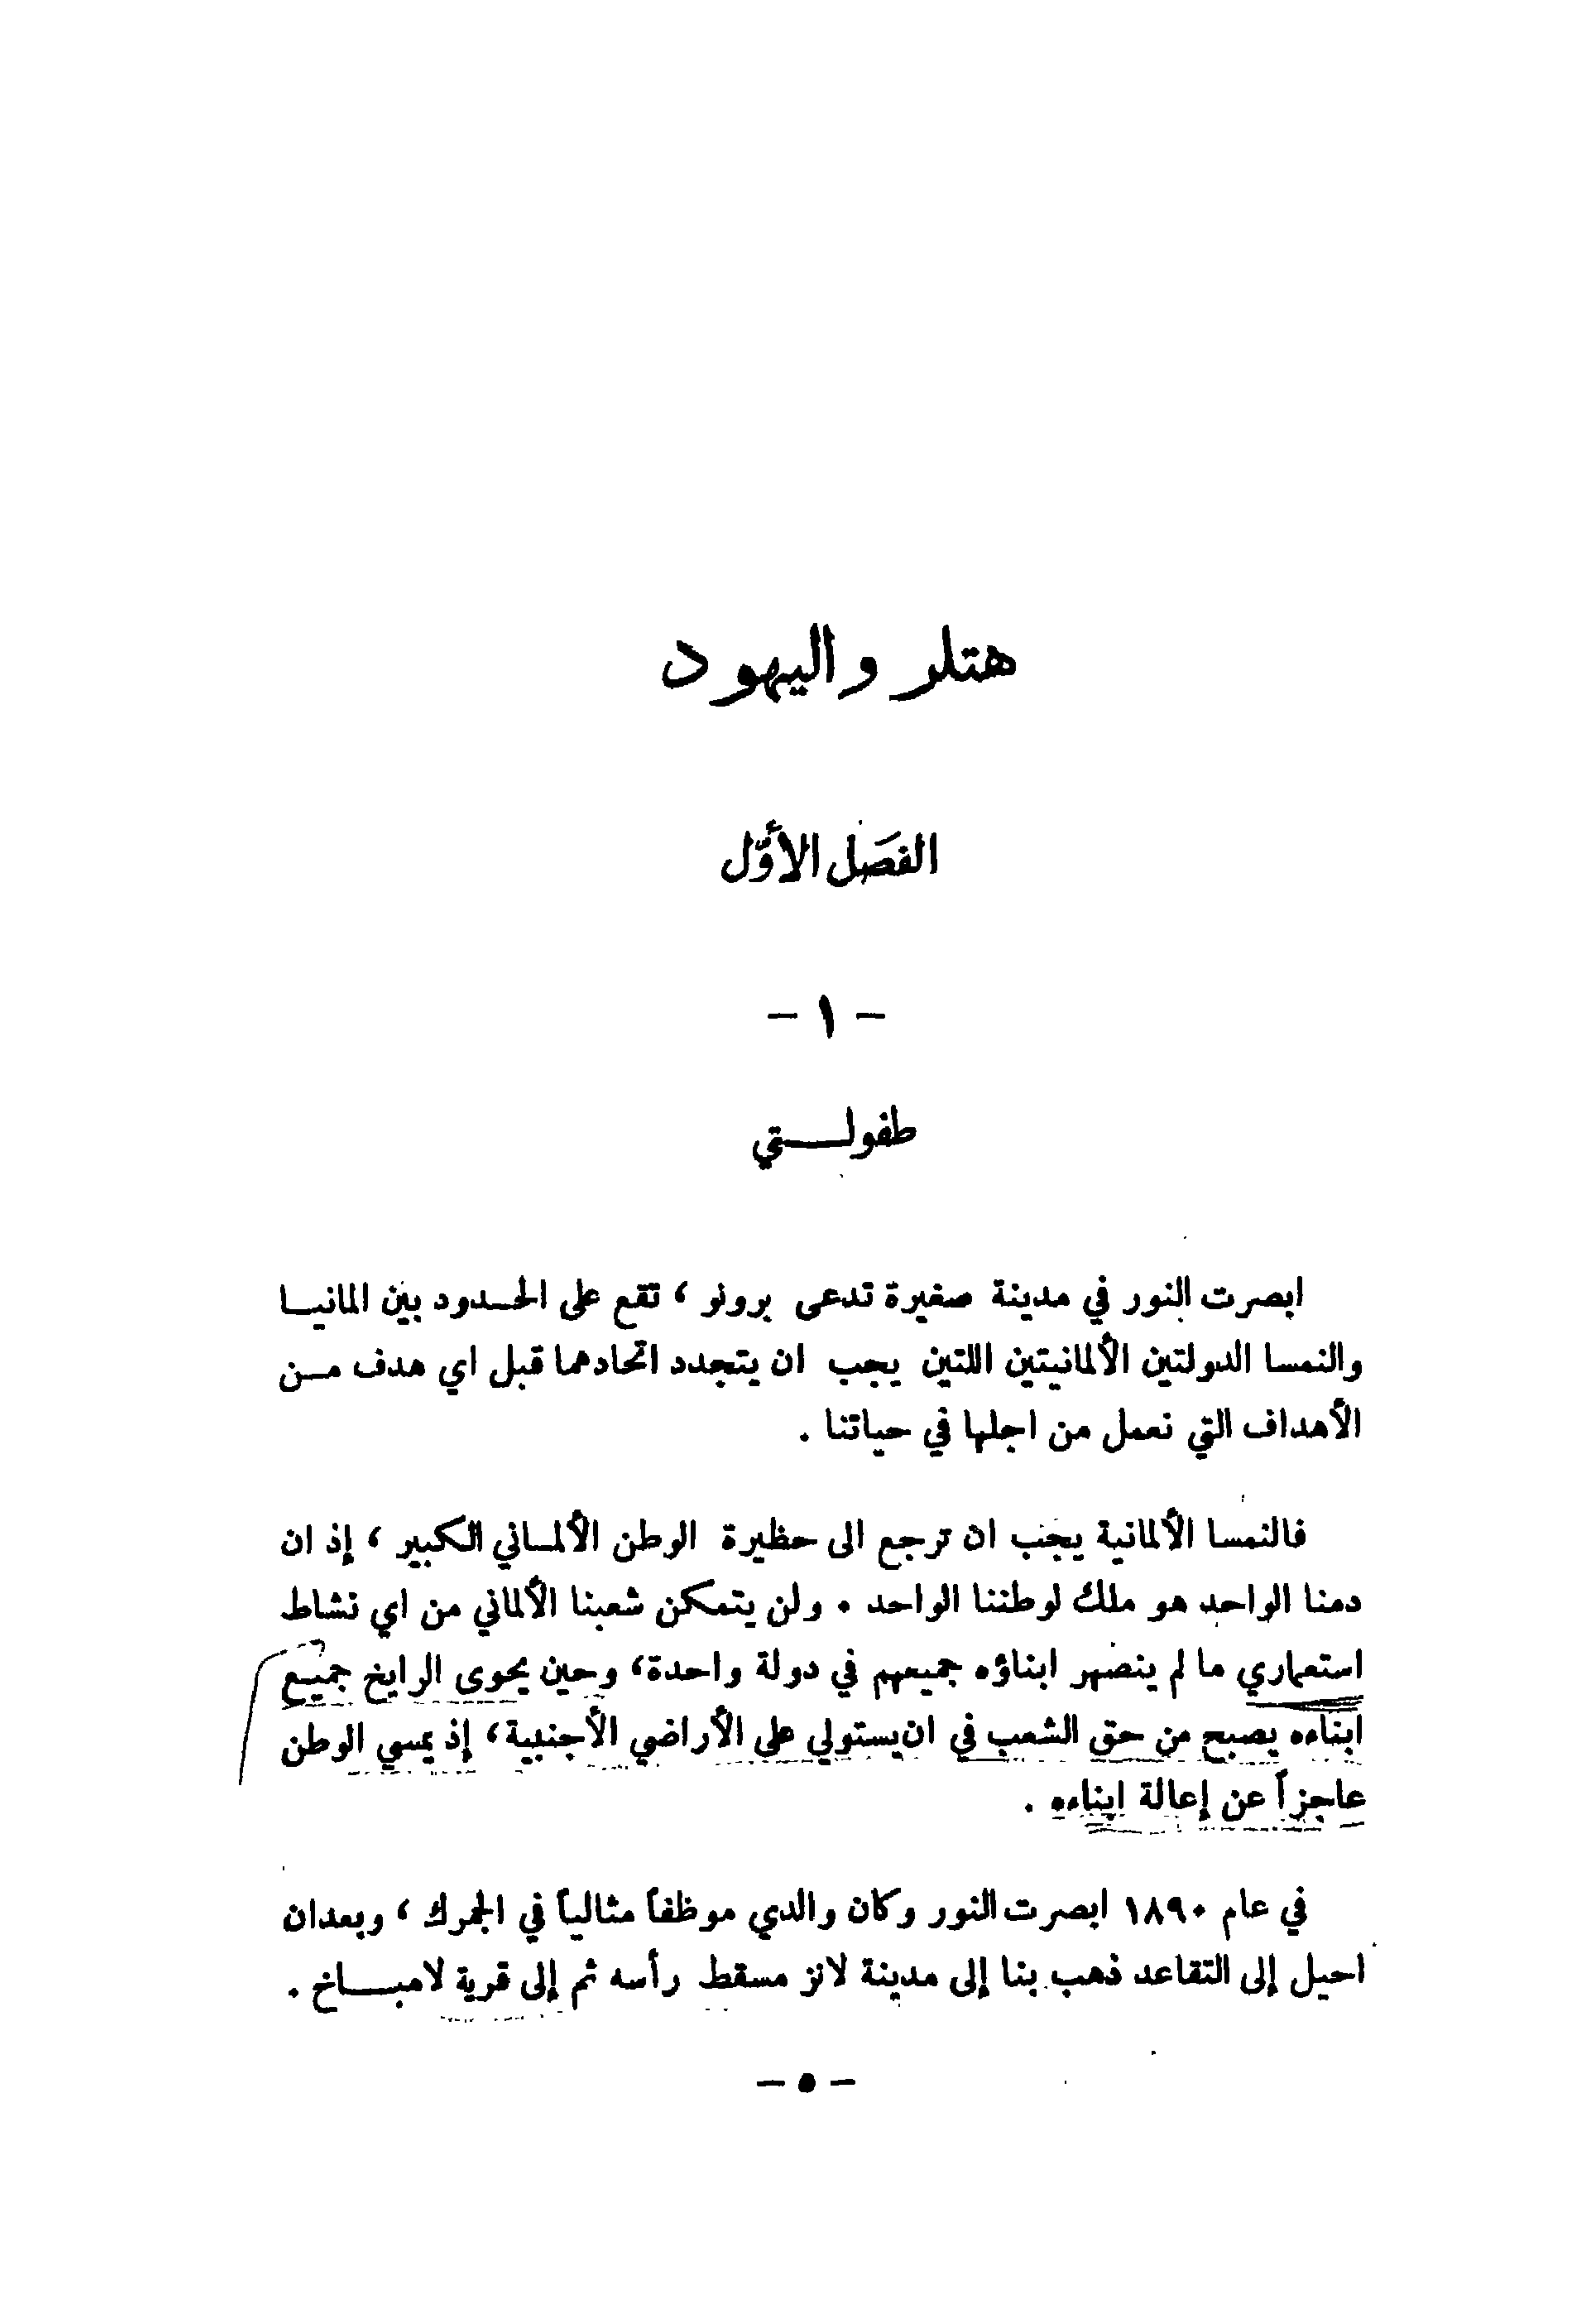 هتلر واليهود
الفصَل الأوّل
- ١ -
طفولـــتي
ابصرت النور في مدينة صغيرة تدعى برونو ، تقع على الحـدود بين المانيـا
والنمسا الدولتين الألمانيتين اللتين يجب ان يتجدد اتحادهما قبل اي هدف مـن
الأهداف التي نعمل من اجلها في حياتنا .
فالنمسا الألمانية يجب ان ترجع الى حظيرة الوطن الألمـاني الكبير ، إذ ان
دمنا الواحد هو ملك لوطننا الواحد . ولن يتمكن شعبنا الألماني من اي نشاط
استعماري ما لم ينصهر ابناؤه جميعهم في دولة واحدة، وحين يحوى الرايخ جميـع
ابناءه يصبح من حق الشعب في ان يستولي على الأراضي الأجنبية، إذ يمسي الوطن
عاجزاً عن إعالة ابناءه .
في عام ١٨٩٠ ابصرت النور وكان والدي موظفاً مثالياً في الجمرك ، وبعدان
احيل إلى التقاعد ذهب بنا إلى مدينة لانز مسقط رأسه ثم إلى قرية لامبـــاخ .
- ٥ -